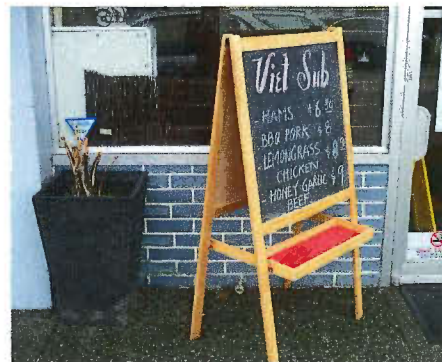 Viet Sub
- HAMS $6.50
- BBQ PORK $8
- LEMONGRASS $8.50
CHICKEN
- HONEY GARLIC $9
BEEF